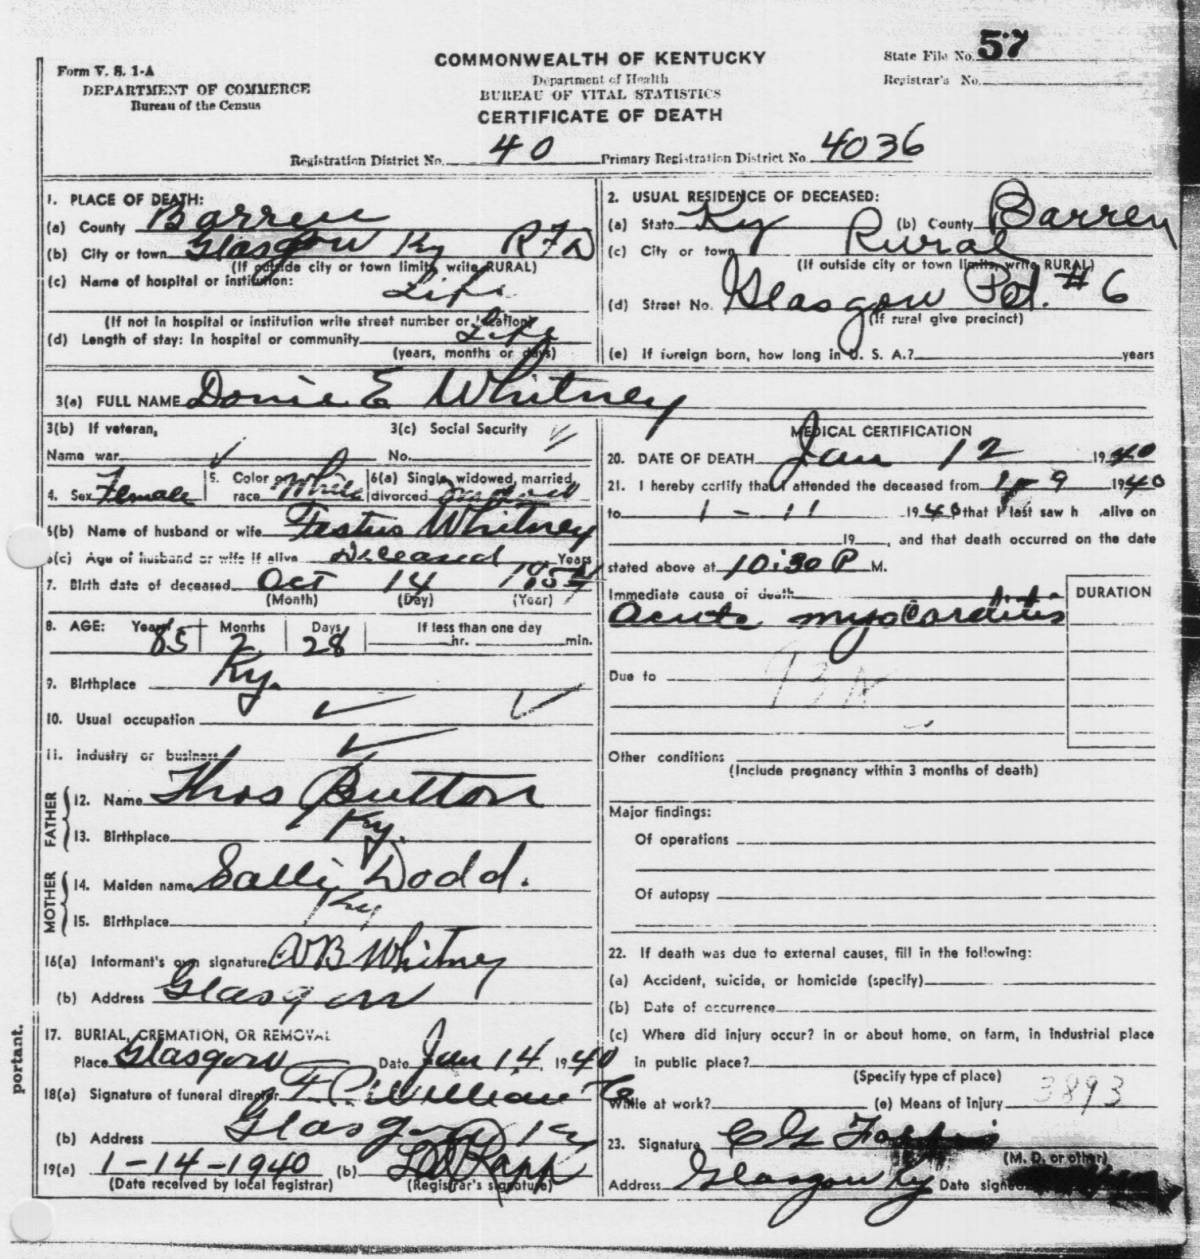 Form V. S. 1-A
DEPARTMENT OF COMMERCE
Bureau of the Census
COMMONWEALTH OF KENTUCKY
Department of Health
BUREAU OF VITAL STATISTICS
CERTIFICATE OF DEATH
State File No. 57
Registrar's No.
Registration District No. 40 Primary Registration District No. 4036
1. PLACE OF DEATH:
(a) County Barren
(b) City or town Glasgow Ky RFD
(If outside city or town limits, write RURAL)
(c) Name of hospital or institution:
Life
(If not in hospital or institution write street number or location)
(d) Length of stay: In hospital or community Life
(years, months or days)
2. USUAL RESIDENCE OF DECEASED:
(a) State Ky (b) County Barren
(c) City or town Rural
(If outside city or town limits, write RURAL)
(d) Street No. Glasgow Rd. # 6
(If rural give precinct)
(e) If foreign born, how long in U. S. A.? years
3(a) FULL NAME Donie E Whitney
3(b) If veteran, 3(c) Social Security
Name war No.
4. Sex Female 5. Color or race White 6(a) Single, widowed, married, divorced
6(b) Name of husband or wife Festus Whitney
6(c) Age of husband or wife if alive Deceased Years
7. Birth date of deceased Oct 14 1854
(Month) (Day) (Year)
8. AGE: Years 85 Months 2 Days 28 If less than one day hr. min.
9. Birthplace Ky.
10. Usual occupation
11. Industry or business
FATHER
12. Name Thos Button
13. Birthplace Ky.
MOTHER
14. Maiden name Salli Dodd.
15. Birthplace Ky
16(a) Informant's own signature Whitney
(b) Address Glasgow
17. BURIAL, CREMATION, OR REMOVAL
Place Glasgow Date Jan 14, 1940
18(a) Signature of funeral director
(b) Address Glasgow Ky
19(a) 1-14-1940 (b)
(Date received by local registrar) (Registrar's signature)
MEDICAL CERTIFICATION
20. DATE OF DEATH Jan 12 1940
21. I hereby certify that I attended the deceased from 9 1940
to 1-11 1940 that I last saw h alive on
19 , and that death occurred on the date
stated above at 10:30 P M.
Immediate cause of death
acute myocarditis
DURATION
Due to
Other conditions
(Include pregnancy within 3 months of death)
Major findings:
Of operations
Of autopsy
22. If death was due to external causes, fill in the following:
(a) Accident, suicide, or homicide (specify)
(b) Date of occurrence
(c) Where did injury occur? in or about home, on farm, in industrial place
in public place?
(Specify type of place)
While at work? (e) Means of injury 3893
23. Signature
(M. D. or other)
Address Glasgow Ky Date signed
portant.